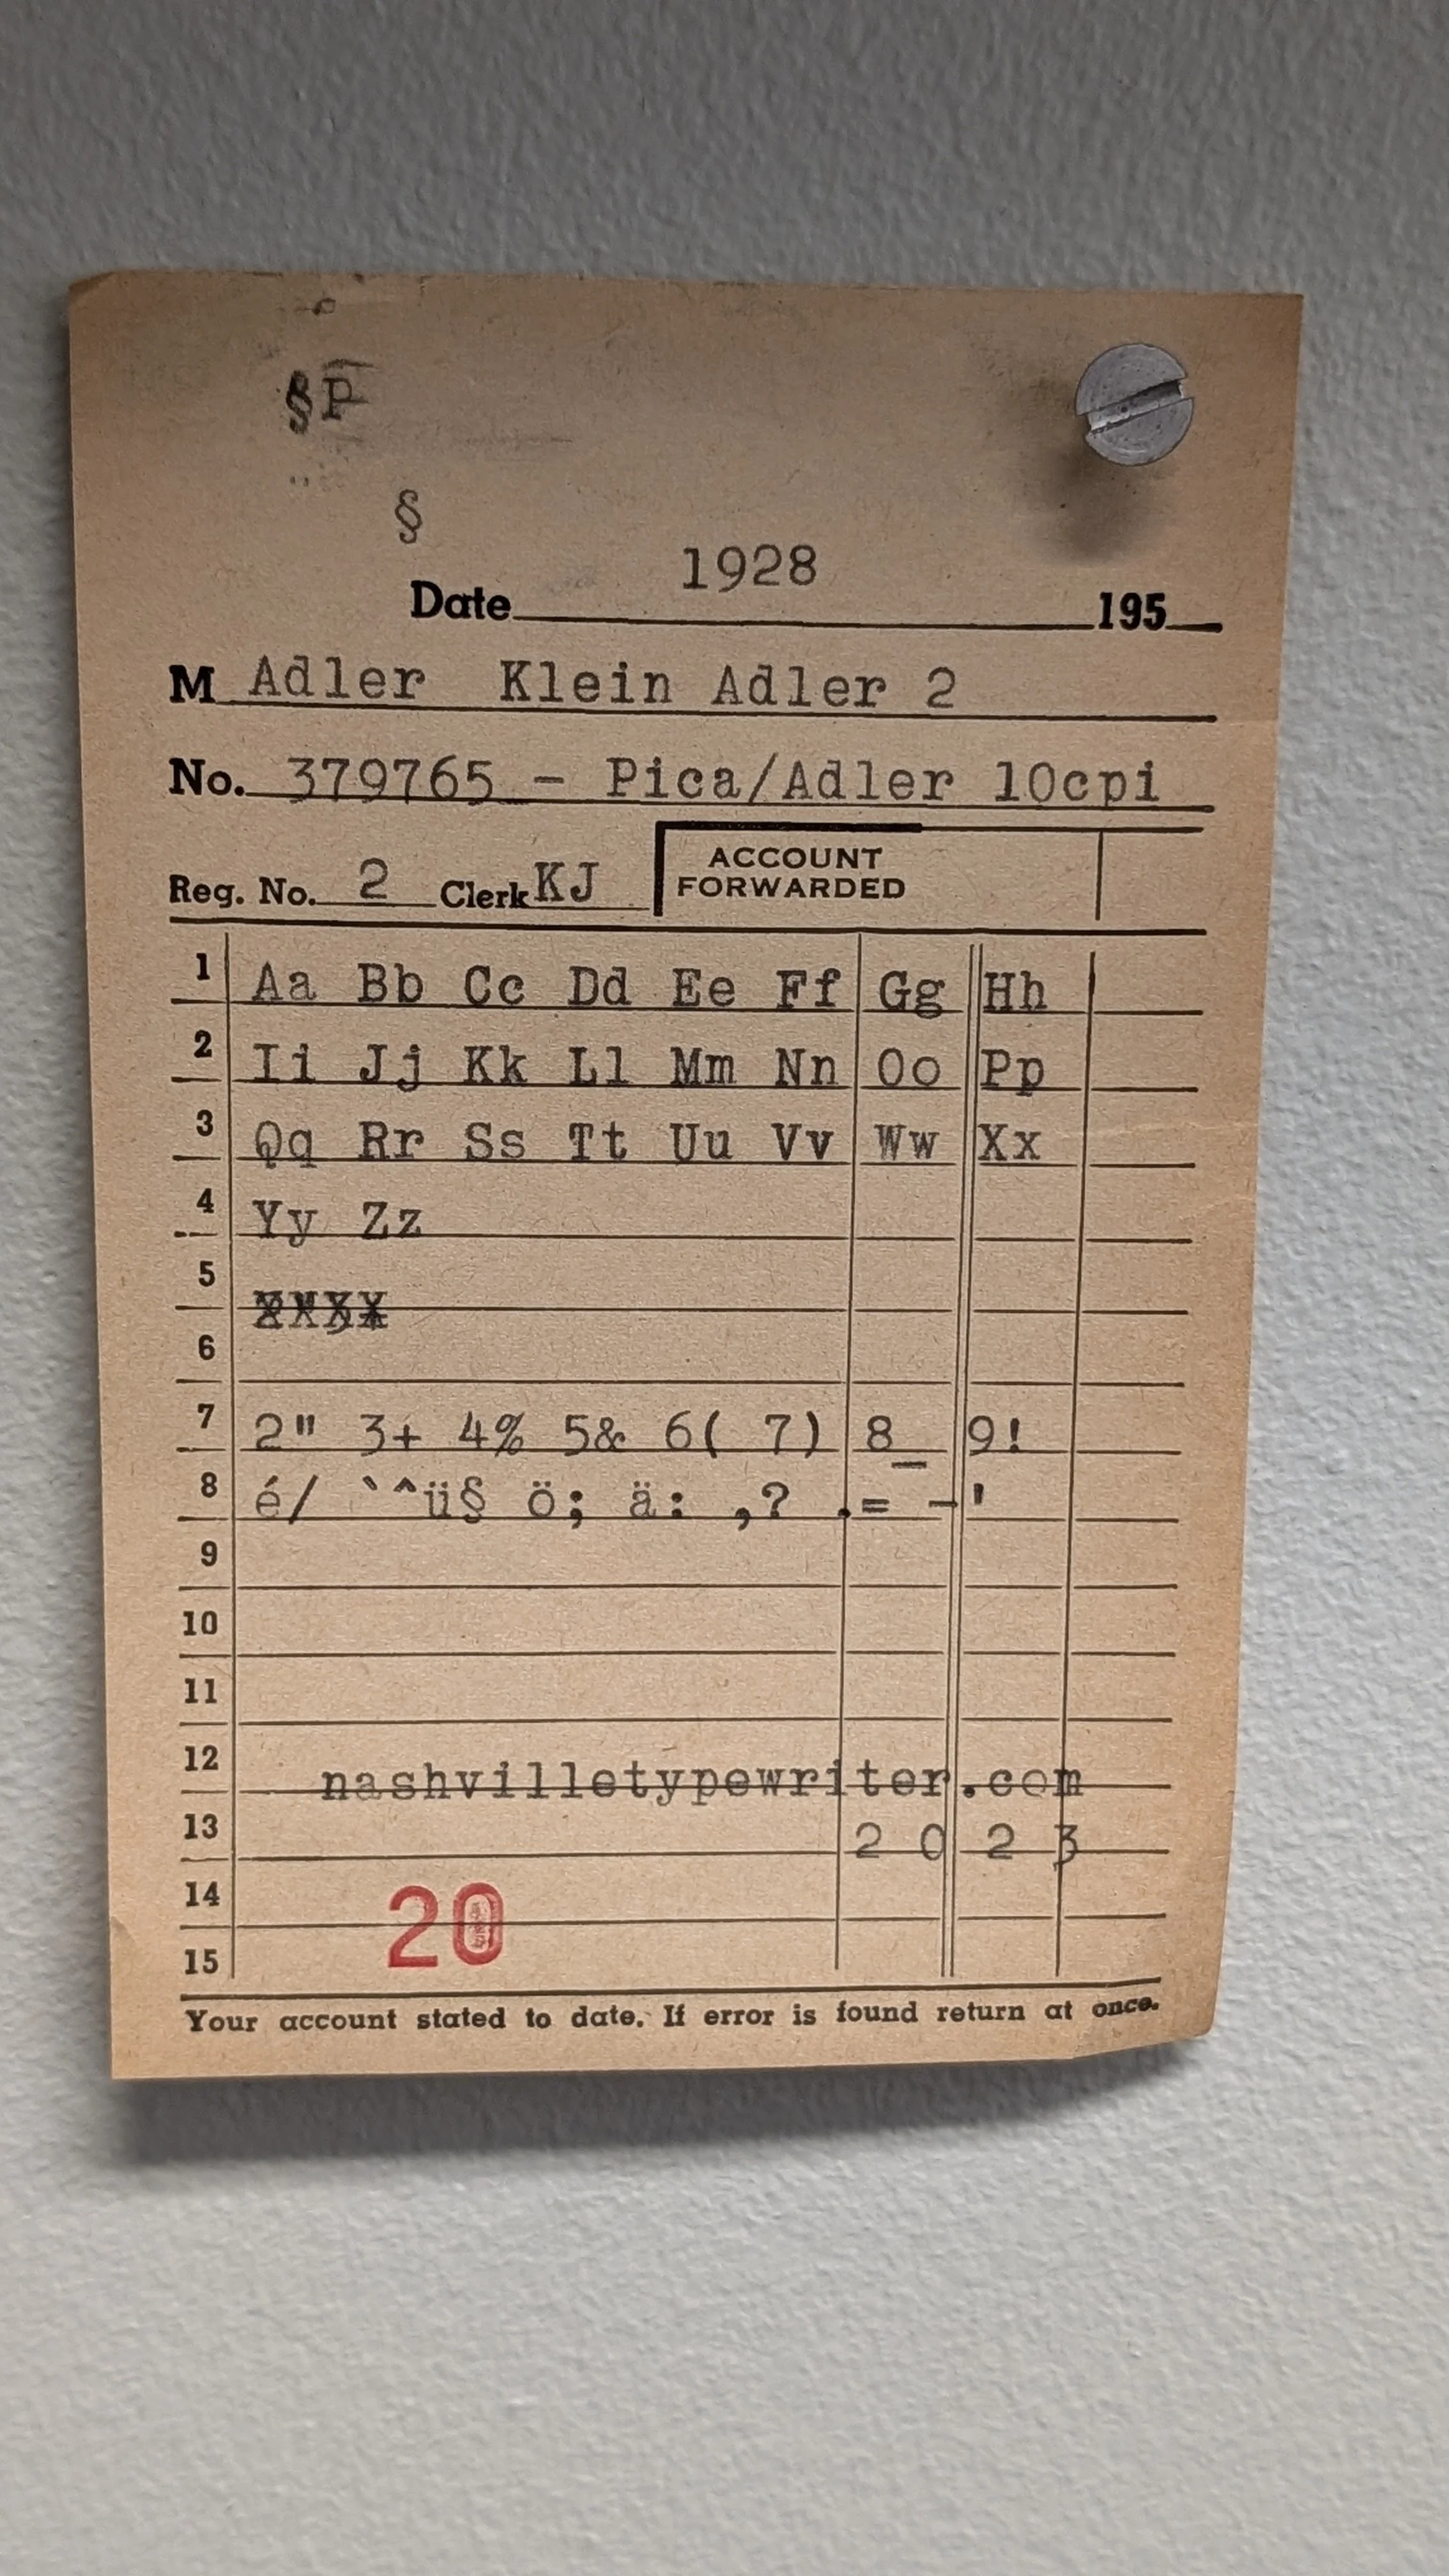 §P
§
1928
Date 195
M Adler Klein Adler 2
No. 379765 - Pica/Adler 10cpi
Reg. No. 2 Clerk KJ ACCOUNT FORWARDED
1 Aa Bb Cc Dd Ee Ff Gg Hh
2 Ii Jj Kk Ll Mm Nn Oo Pp
3 Qq Rr Ss Tt Uu Vv Ww Xx
4 Yy Zz
5
6
7 2" 3+ 4% 5& 6( 7) 8_ 9!
8 é/ `^ü§ ö; ä: ,? .= -'
9
10
11
12 nashvilletypewriter.com
13 2 0 2 3
14 20
15
Your account stated to date. If error is found return at once.